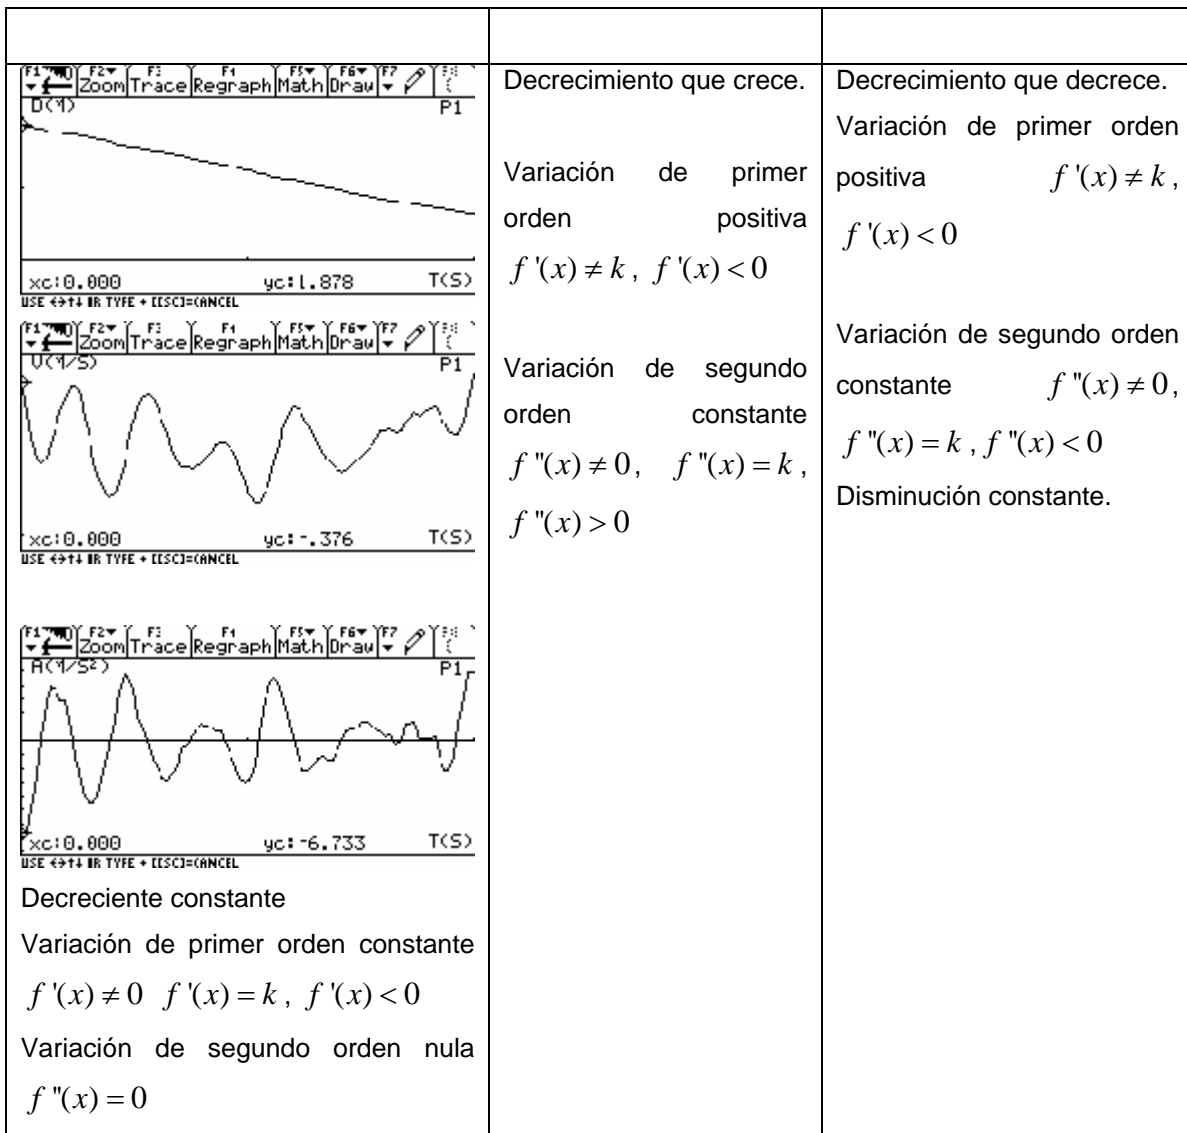 F1 F2 F3 F4 F5 F6 F7 F8
Zoom Trace Regraph Math Draw
D(M) P1
xc:0.000 yc:1.878 T(S)
USE ←→↑↓ OR TYPE + [ESC]=CANCEL
F1 F2 F3 F4 F5 F6 F7 F8
Zoom Trace Regraph Math Draw
V(M/S) P1
xc:0.000 yc:-.376 T(S)
USE ←→↑↓ OR TYPE + [ESC]=CANCEL
F1 F2 F3 F4 F5 F6 F7 F8
Zoom Trace Regraph Math Draw
A(M/S²) P1
xc:0.000 yc:-6.733 T(S)
USE ←→↑↓ OR TYPE + [ESC]=CANCEL
Decreciente constante
Variación de primer orden constante
f '(x) ≠ 0 f '(x) = k , f '(x) < 0
Variación de segundo orden nula
f "(x) = 0
Decrecimiento que crece.
Variación de primer
orden positiva
f '(x) ≠ k , f '(x) < 0
Variación de segundo
orden constante
f "(x) ≠ 0, f "(x) = k ,
f "(x) > 0
Decrecimiento que decrece.
Variación de primer orden
positiva f '(x) ≠ k ,
f '(x) < 0
Variación de segundo orden
constante f "(x) ≠ 0,
f "(x) = k , f "(x) < 0
Disminución constante.